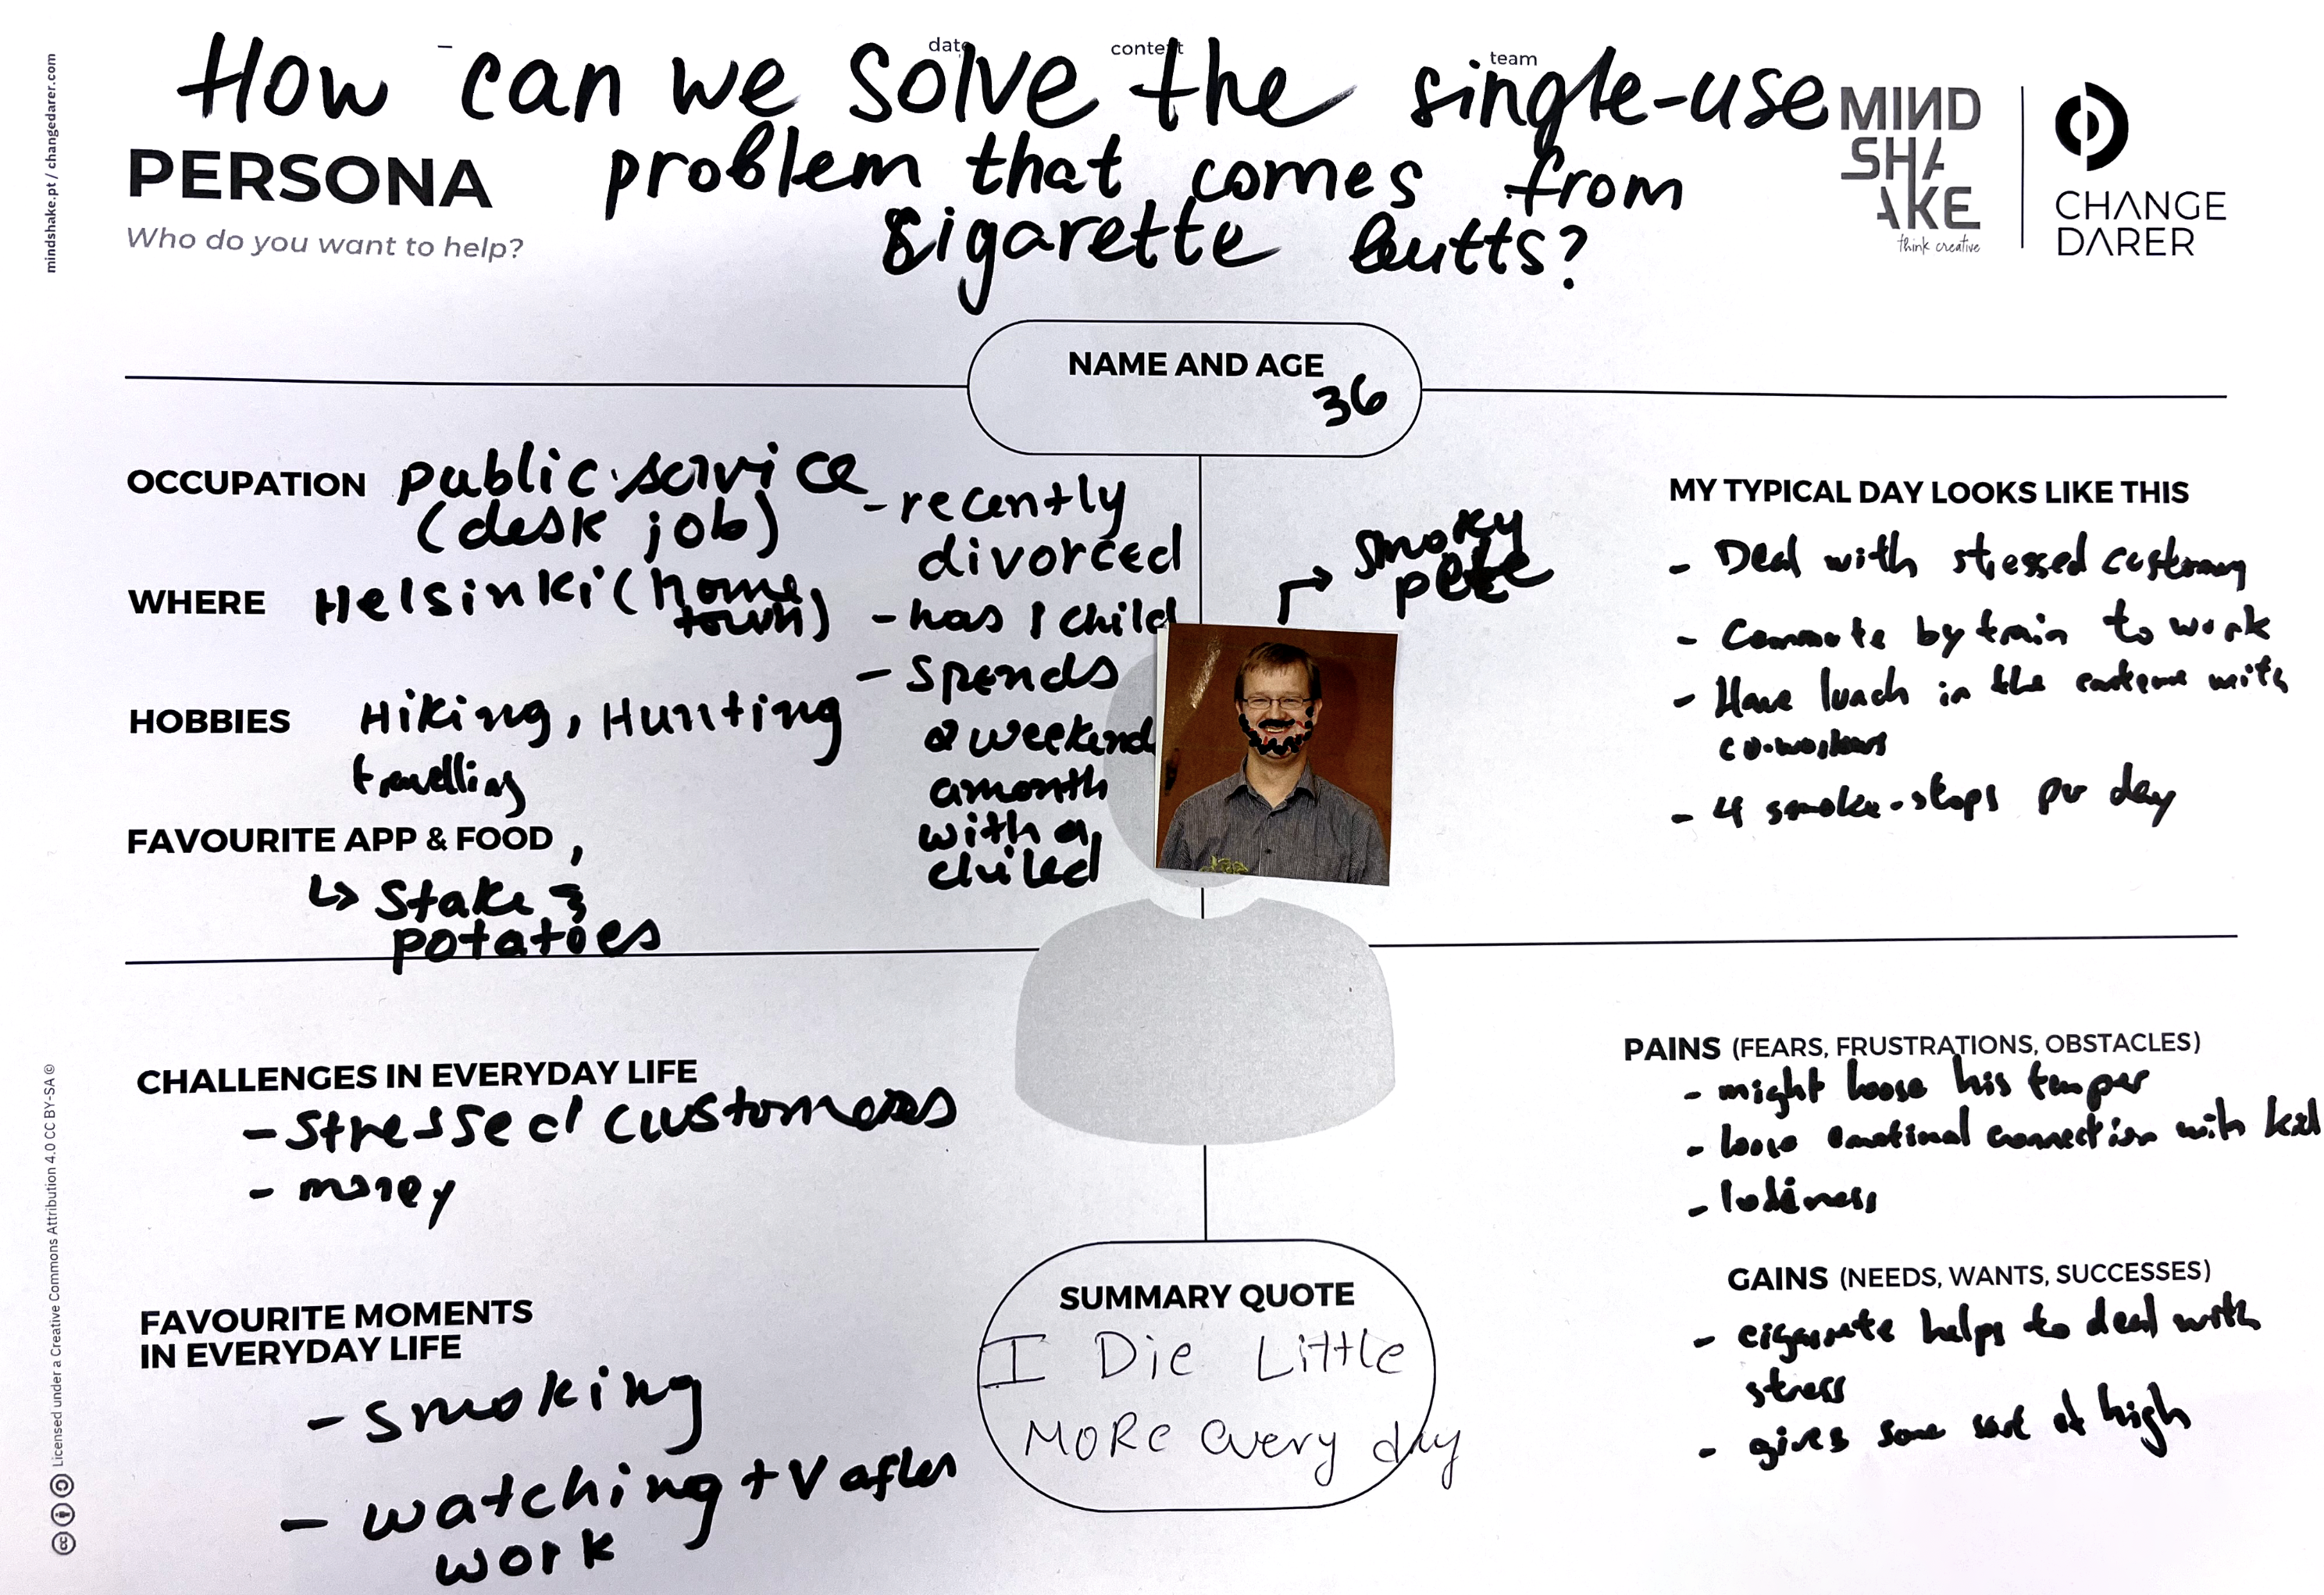 mindshake.pt / changedarer.com
date
context
team
How can we solve the single-use
problem that comes from
sigarette butts?
PERSONA
Who do you want to help?
MIND
SHA
AKE
think creative
CHANGE
DARER
NAME AND AGE
36
OCCUPATION public service
(desk job)
WHERE Helsinki (home
town)
HOBBIES Hiking, Hunting
travelling
FAVOURITE APP & FOOD,
↳ Stake &
potatoes
- recently
divorced
- has 1 child
- spends
2 weekend
a month
with a
chiled
smoky
pete
MY TYPICAL DAY LOOKS LIKE THIS
- Deal with stressed
- Commute by train to work
- Have lunch in the with
co-workers
- 4 smoke-stops per day
CHALLENGES IN EVERYDAY LIFE
- stressed customers
- money
FAVOURITE MOMENTS
IN EVERYDAY LIFE
- smoking
- watching tv after
work
SUMMARY QUOTE
I Die Little
MoRe every day
PAINS (FEARS, FRUSTRATIONS, OBSTACLES)
- might loose his temper
- loose emotinal connection with kid
-
GAINS (NEEDS, WANTS, SUCCESSES)
- cigarette helps to deal with
stress
- gives some sort of high
Licensed under a Creative Commons Attribution 4.0 CC BY-SA ©